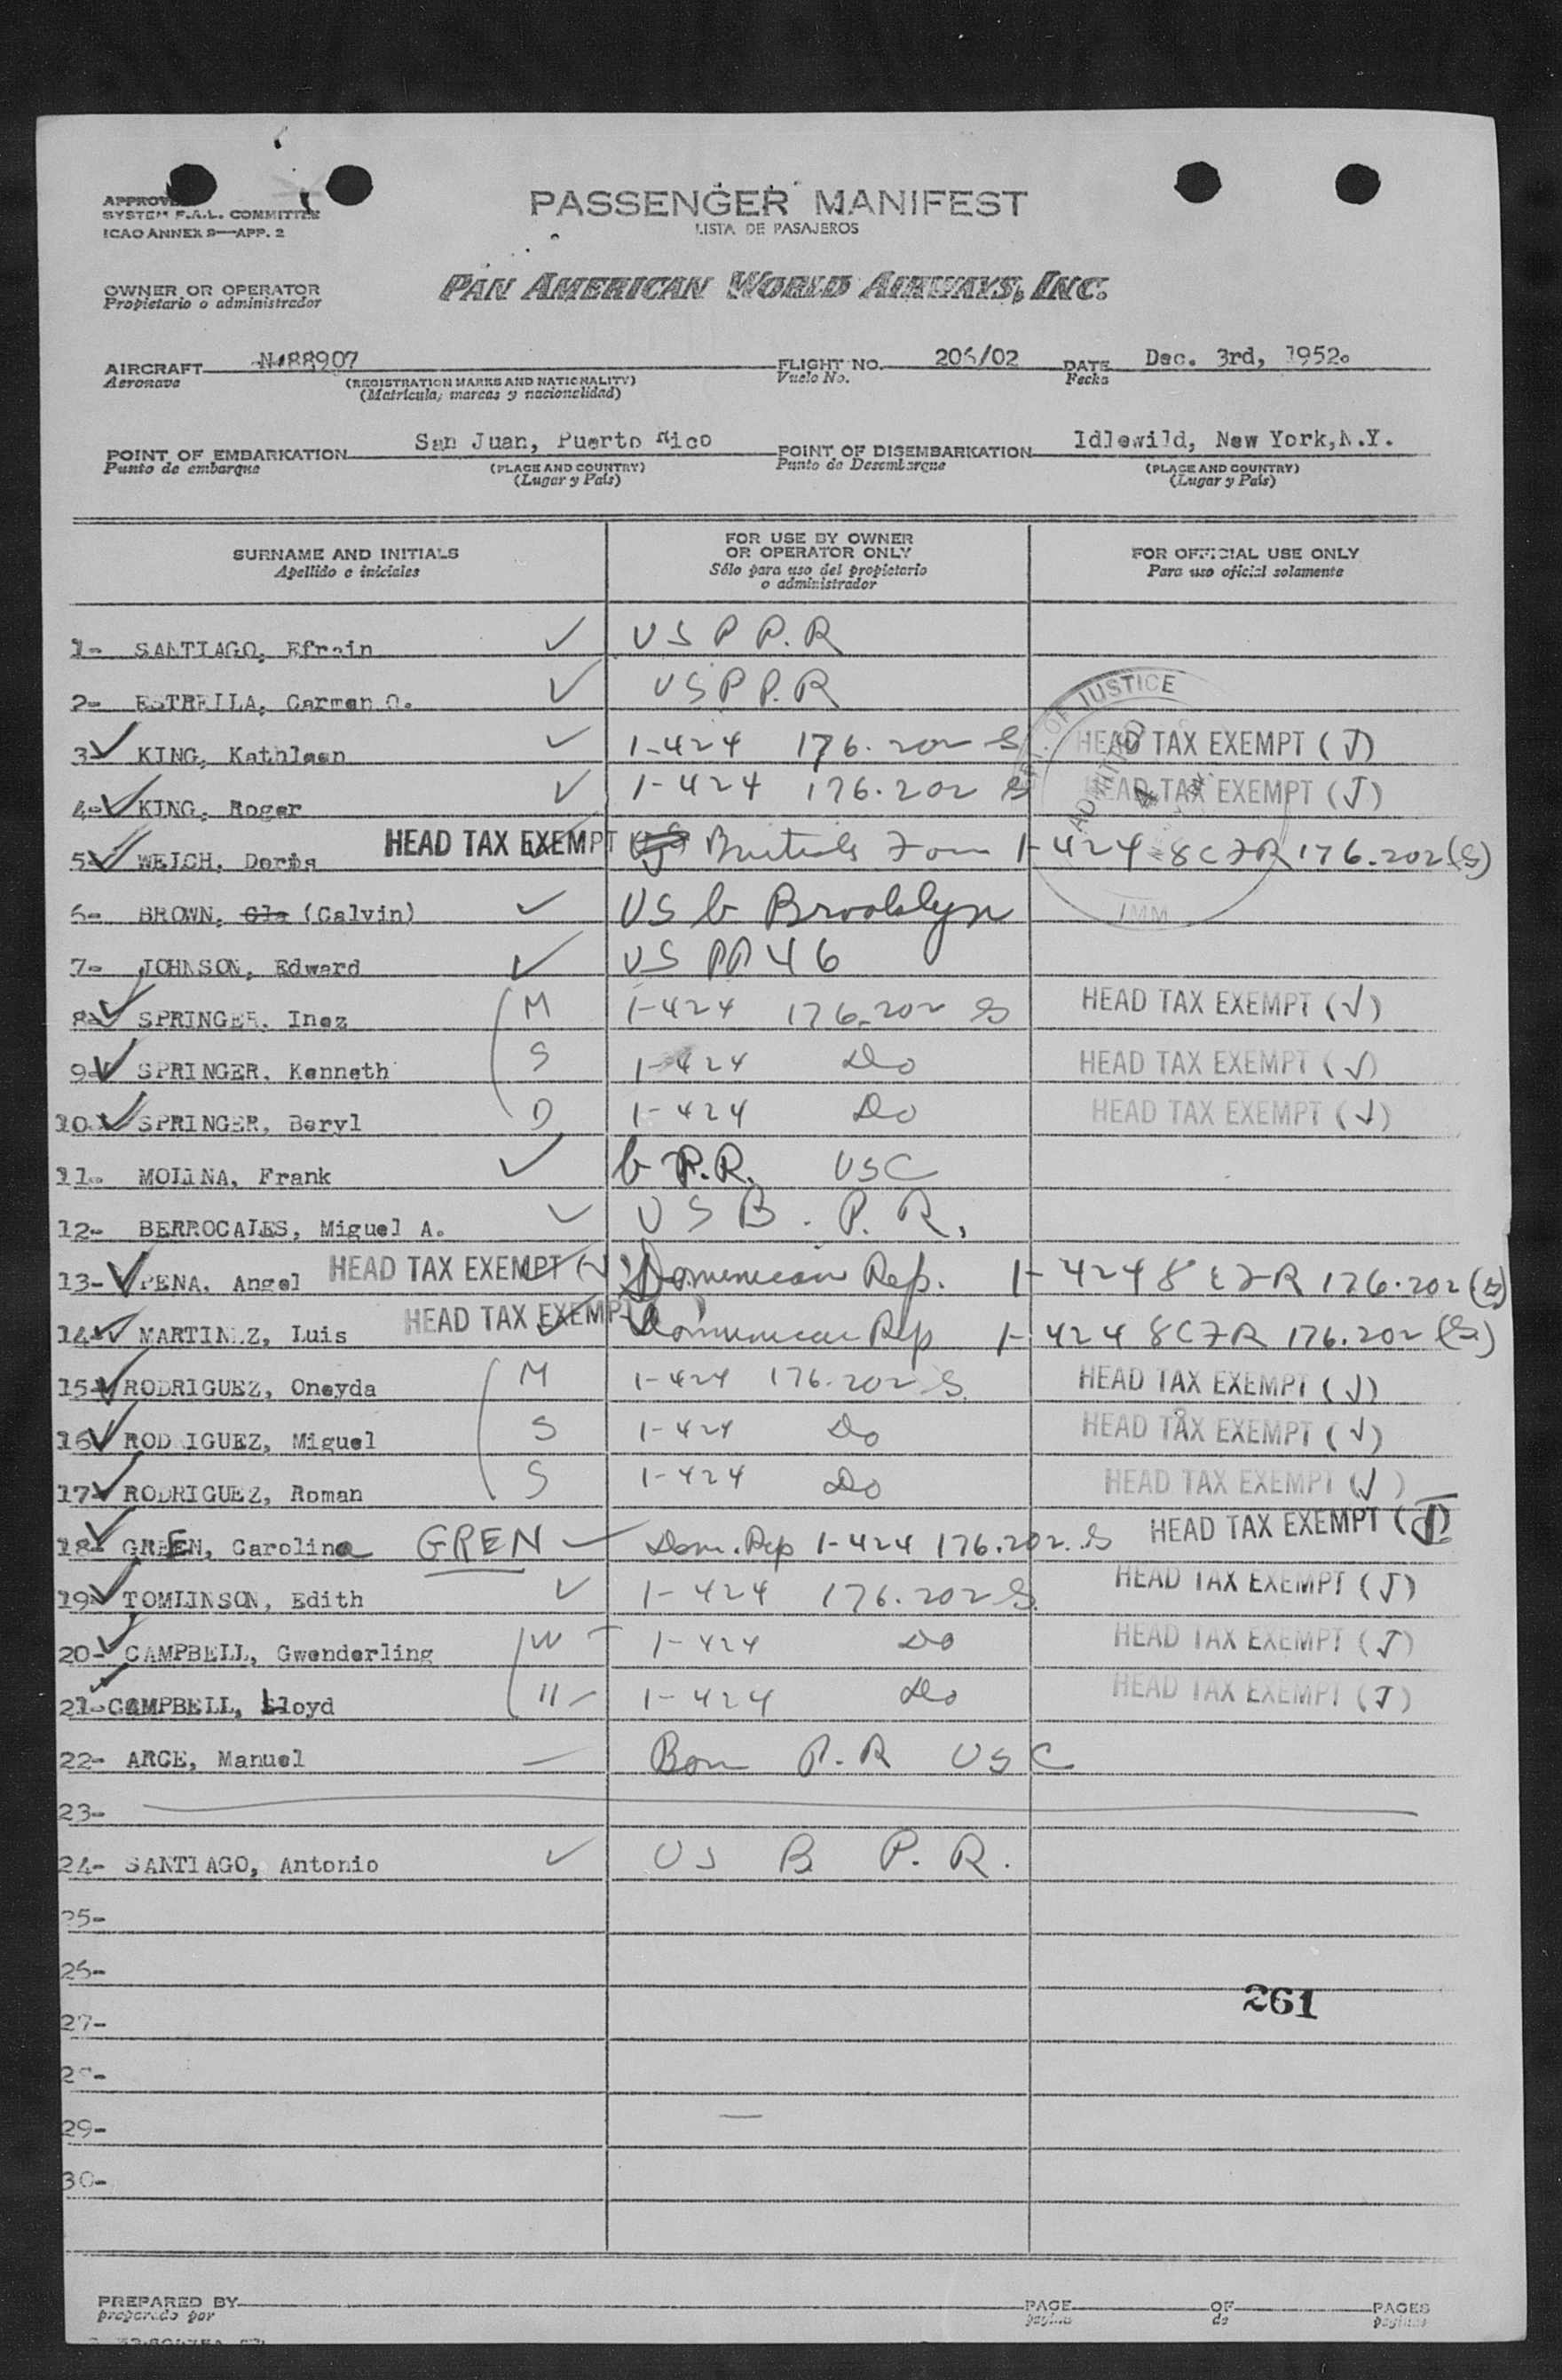 APPROVED
SYSTEM F.A.L. COMMITTEE
ICAO ANNEX 9—APP. 2
PASSENGER MANIFEST
LISTA DE PASAJEROS
OWNER OR OPERATOR
Propietario o administrador
PAN AMERICAN WORLD AIRWAYS, INC.
AIRCRAFT N-88907 FLIGHT NO. 206/02 DATE Dec. 3rd, 1952.
Aeronave (REGISTRATION MARKS AND NATIONALITY) Vuelo No. Fecha
(Matrícula, marcas y nacionalidad)
POINT OF EMBARKATION San Juan, Puerto Rico POINT OF DISEMBARKATION Idlewild, New York,N.Y.
Punto de embarque (PLACE AND COUNTRY) Punto de Desembarque (PLACE AND COUNTRY)
(Lugar y País) (Lugar y País)
SURNAME AND INITIALS FOR USE BY OWNER OR OPERATOR ONLY FOR OFFICIAL USE ONLY
Apellido e iniciales Sólo para uso del propietario o administrador Para uso oficial solamente
1- SANTIAGO, Efrain ✓ US P P.R
2- ESTRELLA, Carmen O. ✓ US P P.R
3- ✓ KING, Kathleen ✓ 1-424 176.202 S HEAD TAX EXEMPT (J)
4- ✓ KING, Roger ✓ 1-424 176.202 S HEAD TAX EXEMPT (J)
DEPT. OF JUSTICE
ADMITTED
IMM
5- ✓ WELCH, HEAD TAX EXEMPT British 1-424 8CFR 176.202(S)
6- BROWN, Cla (Calvin) ✓ US b Brooklyn
7- JOHNSON, Edward ✓ US PP 46
8- ✓ SPRINGER, Inez M 1-424 176.202 S HEAD TAX EXEMPT (J)
9- ✓ SPRINGER, Kenneth S 1-424 Do HEAD TAX EXEMPT (J)
10- ✓ SPRINGER, Beryl D 1-424 Do HEAD TAX EXEMPT (J)
11- MOLINA, Frank ✓ b P.R. USC
12- BERROCALES, Miguel A. ✓ US B. P.R.
13- ✓ PENA, Angel HEAD TAX EXEMPT (J) Dominican Rep. 1-424 8 CFR 176.202 (S)
14- ✓ MARTINEZ, Luis HEAD TAX EXEMPT Dominican Rep 1-424 8CFR 176.202 (S)
15- ✓ RODRIGUEZ, Oneyda M 1-424 176.202 S HEAD TAX EXEMPT (J)
16- ✓ RODRIGUEZ, Miguel S 1-424 Do HEAD TAX EXEMPT (J)
17- ✓ RODRIGUEZ, Roman S 1-424 Do HEAD TAX EXEMPT (J)
18- ✓ GREEN, Carolina GREN Dom. Rep 1-424 176.202. S HEAD TAX EXEMPT (J)
19- ✓ TOMLINSON, Edith ✓ 1-424 176.202 S. HEAD TAX EXEMPT (J)
20- ✓ CAMPBELL, Gwenderling W 1-424 Do HEAD TAX EXEMPT (J)
21- CAMPBELL, Lloyd H 1-424 Do HEAD TAX EXEMPT (J)
22- ARCE, Manuel — Born P.R USC
23-
24- SANTIAGO, Antonio ✓ US B P.R.
25-
26-
261
27-
28-
29-
30-
PREPARED BY PAGE OF PAGES
preparado por página de páginas